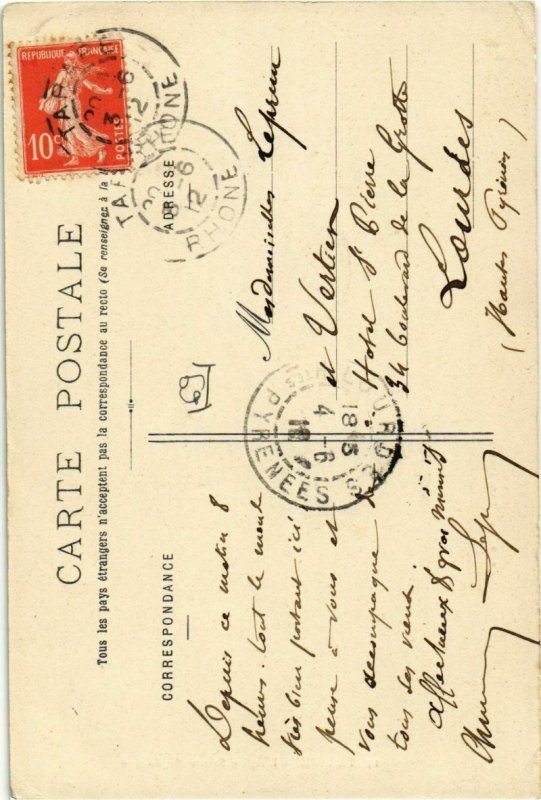 CARTE POSTALE
Tous les pays étrangers n'acceptent pas la correspondance au recto (Se renseigner à la
CORRESPONDANCE
ADRESSE
REPUBLIQUE FRANÇAISE
10
POSTES
TARARE
20
3 -6
12
RHONE
TARARE
20
3 -6
12
RHONE
LOURDES
18-5
4-6
PYRENEES
69
Depuis ce matin 8
heures. tout le monde
très bien portant ici
pense à vous et
vous accompagne de
tous ses vœux
Affectueux & gros mimis
Mesdemoiselles Leprun
et Vertier
Hotel St Pierre
34 boulevard de la Grotte
Lourdes
(Hautes Pyrénées)